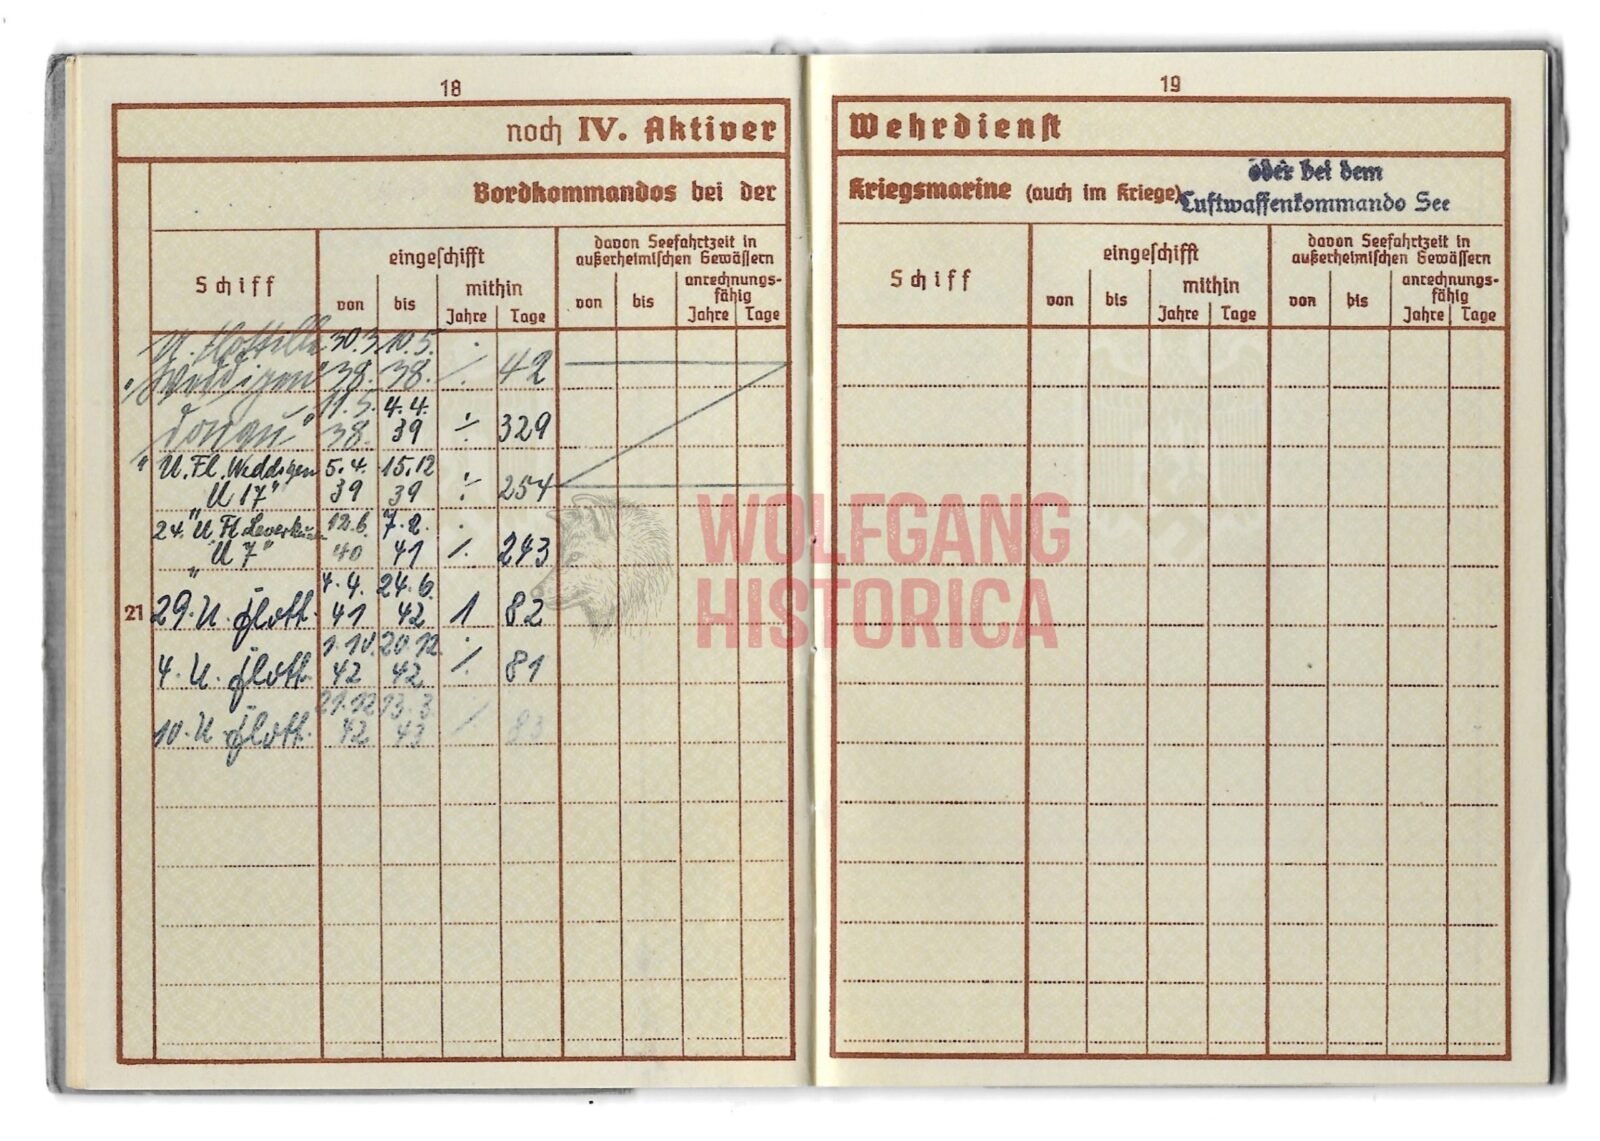 18
noch IV. Aktiver
Bordkommandos bei der
Schiff
eingeschifft
von bis mithin
Jahre Tage
davon Seefahrtzeit in
außerheimischen Gewässern
von bis anrechnungs-
fähig
Jahre Tage
U. Flottille 30.3. 10.5.
"Weddigen" 38. 38. ·/. 42
11.5. 4.4.
"Donau" 38. 39 ÷ 329
"U. Fl. Weddigen 5.4. 15.12
"U 17" 39 39 ÷ 254
24. U. Fl 12.6. 7.2.
"U 7" 40 41 ·/. 243
4.4. 24.6.
21 29. U. Flott. 41 42 1 82
1.10. 20.12.
4. U. Flott. 42 42 ·/. 81
21.12 13.3
10. U Flott. 42 43 ·/. 83
19
Wehrdienst
Kriegsmarine (auch im Kriege)
oder bei dem
Luftwaffenkommando See
Schiff
eingeschifft
von bis mithin
Jahre Tage
davon Seefahrtzeit in
außerheimischen Gewässern
von bis anrechnungs-
fähig
Jahre Tage
WOLFGANG
HISTORICA